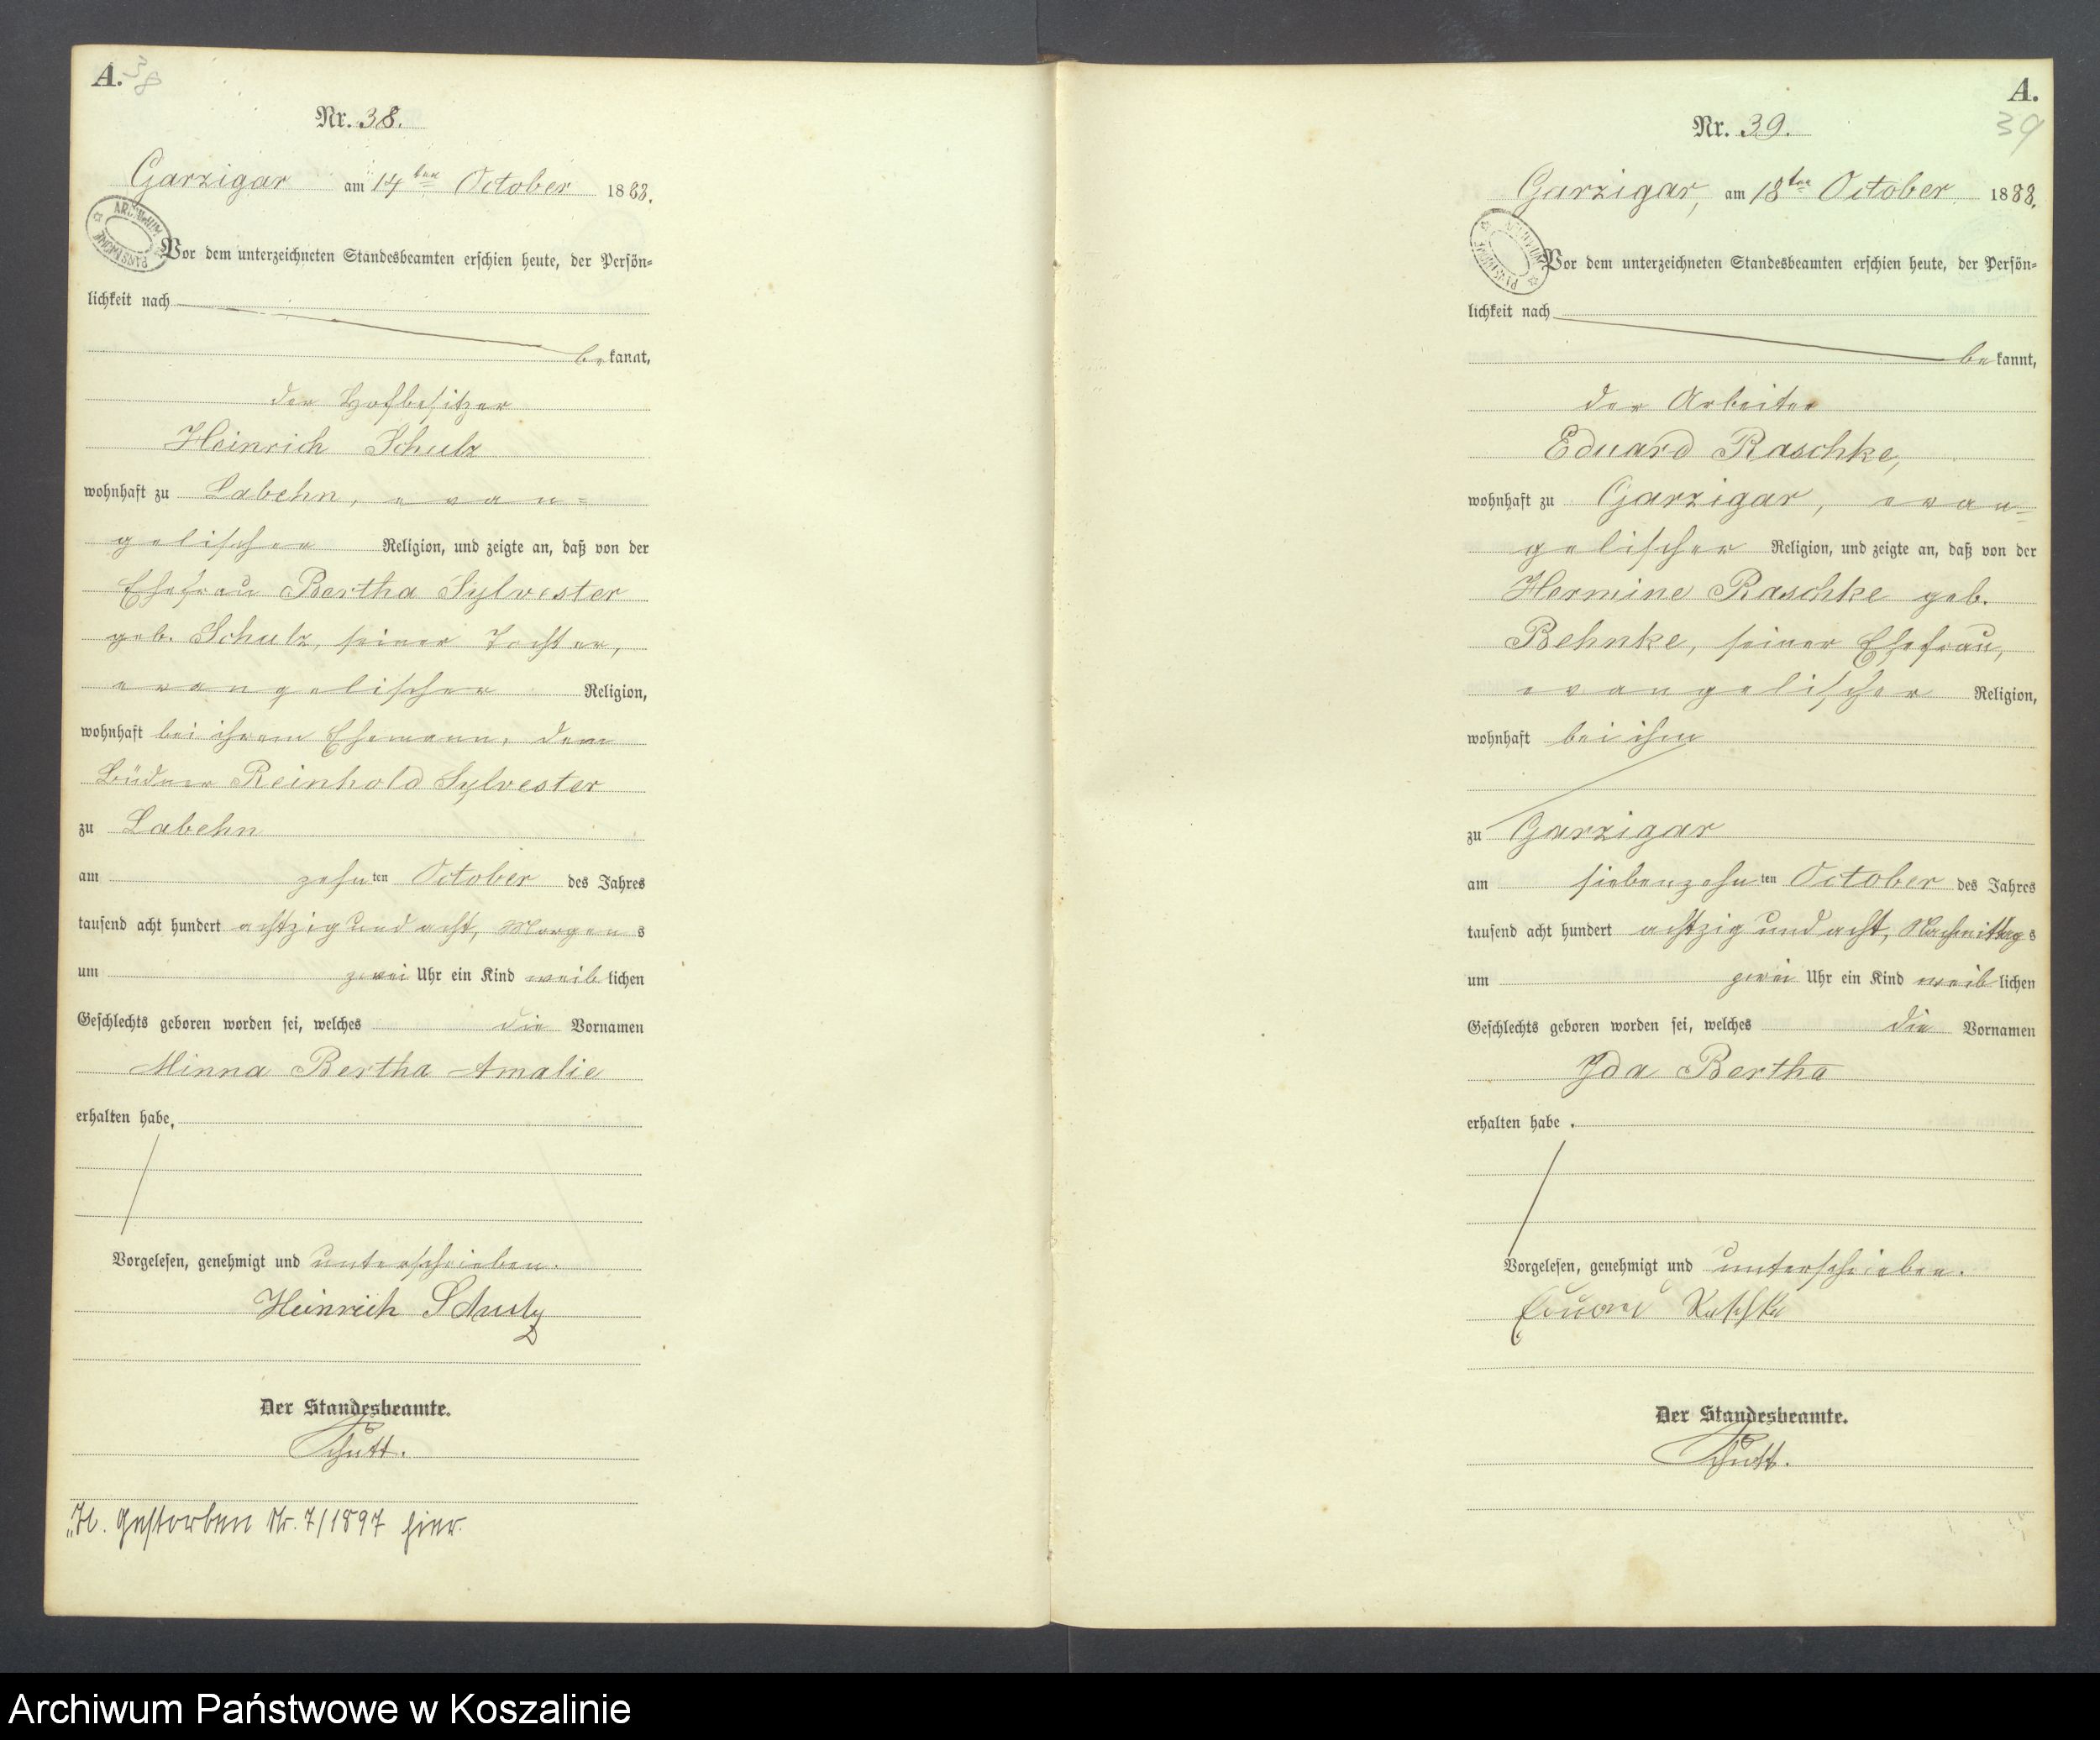 A.
38
Nr. 38.
Garzigar am 14ten October 1888.
ARCHIWUM PAŃSTWOWE
Vor dem unterzeichneten Standesbeamten erschien heute, der Persön=
lichkeit nach
bekannt,
der Hofbesitzer
Heinrich Schulz
wohnhaft zu Labehn, evan=
gelischer Religion, und zeigte an, daß von der
Ehefrau Bertha Sylvester
geb. Schulz, seiner Tochter,
evangelischer Religion,
wohnhaft bei ihrem Ehemann, dem
Büdner Reinhold Sylvester
zu Labehn
am zehnten October des Jahres
tausend acht hundert achtzig und acht, Morgens
um zwei Uhr ein Kind weiblichen
Geschlechts geboren worden sei, welches die Vornamen
Minna Bertha Amalie
erhalten habe.
Vorgelesen, genehmigt und unterschrieben.
Heinrich Schulz
Der Standesbeamte.
Schütt.
Gestorben Nr. 7/1897 hier.
A.
39
Nr. 39.
Garzigar, am 18ten October 1888.
ARCHIWUM PAŃSTWOWE
Vor dem unterzeichneten Standesbeamten erschien heute, der Persön=
lichkeit nach
bekannt,
der Arbeiter
Eduard Raschke,
wohnhaft zu Garzigar, evan=
gelischer Religion, und zeigte an, daß von der
Hermine Raschke geb.
Behnke, seiner Ehefrau,
evangelischer Religion,
wohnhaft bei ihm
zu Garzigar
am siebenzehnten October des Jahres
tausend acht hundert achtzig und acht, Nachmittags
um zwei Uhr ein Kind weiblichen
Geschlechts geboren worden sei, welches die Vornamen
Ida Bertha
erhalten habe.
Vorgelesen, genehmigt und unterschrieben.
Eduard Raschke
Der Standesbeamte.
Schütt.
Archiwum Państwowe w Koszalinie